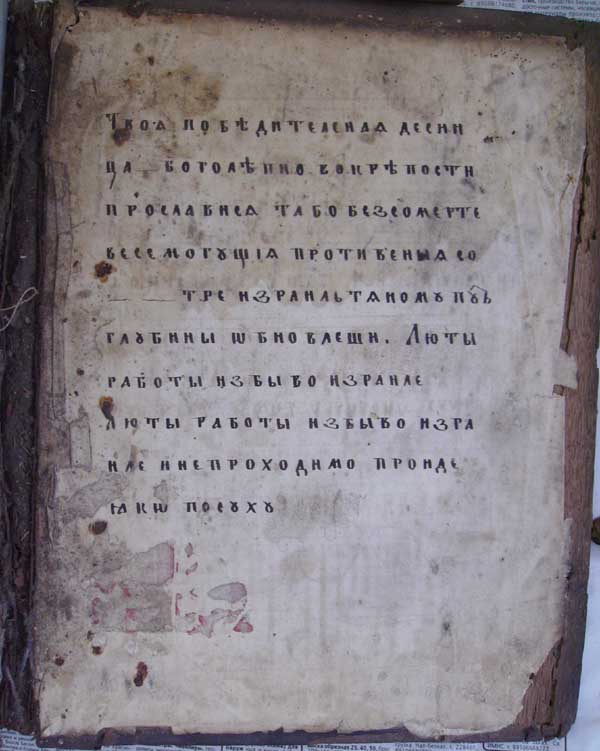 Твоя побѣдителсная десни
ца боголѣпно вокрѣпости
прославися та бо безсомерте
весемогущiя противеныя со
тре израильтяномъ пуь
глубины ѡбновлещи. Люты
работы избывоизраиле
люты работы избывоизра
иле инепроходимо проиде
ꙗкѡ посуху